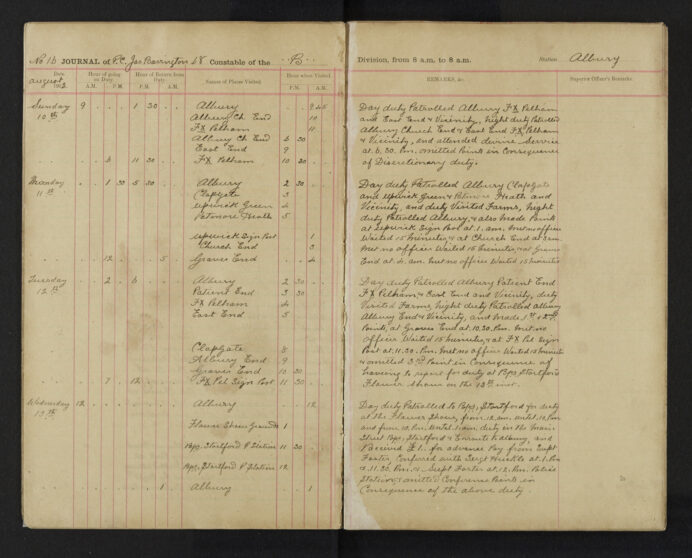 No 16 JOURNAL of P.C. Jas Barrington 48 Constable of the B Division, from 8 a.m. to 8 a.m. Station Albury
Date Hour of going on Duty Hour of Return from Duty Names of Places Visited Hour when Visited REMARKS, &c. Superior Officer's Remarks.
August A.M. P.M. P.M. A.M. P.M. A.M.
Sunday 9 1 30 Albury 9 45
10th Albury Ch. End 10
Fx Pelham 11
Albury Ch End 6 30
East End 9
6 11 30 Fx Pelham 10 30
Day duty Patrolled Albury Fx Pelham
and East End & Vicinity, Night duty Patrolled
Albury Church End & East End Fx Pelham
& Vicinity, and attended devine Service
at 6.30. Pm. omitted Points in Consequence
of Discretionary duty.
Monday 1 30 5 30 Albury 2 30
11th Clapgate 3
Upwick Green 4
Patmore Heath 5
Upwick Sign Post 1
Church End 3
12 5 Graves End 4
Day duty Patrolled Albury Clapgate
and Upwick Green & Patmore Heath and
Vicinity, and duty Visited Farms, Night
duty Patrolled Albury, & also Made Points
at Upwick Sign Post at 1. am. Met no officer
Waited 15 minutes, & at Church End at 3 am.
Met no officer Waited 15 minutes, & at Graves
End at 4. am. Met no officer Waited 15 minutes
Tuesday 2 6 Albury 2 30
12th Patient End 3 30
Fx Pelham 4
East End 5
Clapgate 8
Albury End 9
Graves End 10 30
7 12 Fx Pel Sign Post 11 30
Day duty Patrolled Albury Patient End
Fx Pelham & East End and Vicinity, duty
Visited Farms, Night duty Patrolled Albury
Albury End & Vicinity, and Made 1st & 2nd
Points, at Graves End at 10.30. Pm. Met no
officer Waited 15 minutes, & at Fx Pel Sign
Post at 11.30. Pm. Met no officer Waited 15 minutes
& omitted 3rd Point in Consequence of
having to report for duty at Bps Stortford
Flower Show on the 13th inst.
Wednesday 12 Albury 12
13th Flower Show Grounds 1
Bps, Stortford P Station 11 30
Bps, Stortford P Station 12
1 Albury 1
Day duty Patrolled to Bps, Stortford for duty
at the Flower Show, from 12. am. until 10. Pm
and from 10. Pm. until 1. am. duty in the Main
Street Bps, Stortford & Enroute to Albury, and
Received £1. for advance Pay from Supt
Foster, Conferred with Sergt Huckle at 1. Pm
& 11.30. Pm. & Supt Foster at 12. Pm. Police
Station, & omitted Conference Points in
Consequence of the above duty.